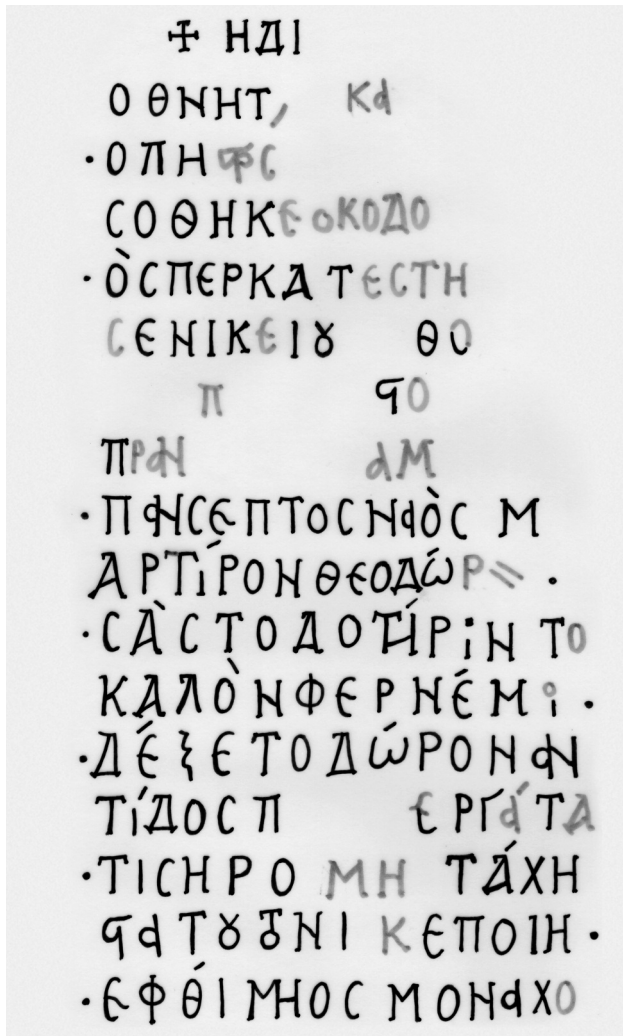 + ΗΔΙ
Ο ΘΝΗΤ, Κα
·ΟΠΗΦΣ
CΟΘΗΚΕΟΚΟΔΟ
·ὉCΠΕΡΚΑΤΕCΤΗ
CΕΝΙΚΕΙȣ ΘΟ
Π ϤΟ
ΠΡαΝ αΜ
·ΠαΝCΕΠΤΟCΝαὸC Μ
ΑΡΤίΡΟΝΘΕΟΔώΡ ·
·CᾺCΤΟΔΟΤΉΡΙΝ ΤΟ
ΚΑΛῸΝΦΕΡΝΈΜΙ ·
·ΔΈξΕΤΟΔώΡΟΝαΝ
ΤίΔΟCΠ ΕΡΓάΤΑ
·ΤΙCΗΡΟ ΜΗ ΤΆΧΗ
ΚΕΠΟΙΗ·
·ΕΦΘΙΜΗΟC ΜΟΝαΧΟ